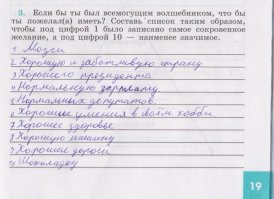 3. Если бы ты был всемогущим волшебником, что бы
ты пожелал(а) иметь? Составь список таким образом,
чтобы под цифрой 1 было записано самое сокровенное
желание, а под цифрой 10 — наименее значимое.
1 Мозги
2 Хорошую и заботливую страну
3 Хорошего президента
4 Нормальную зарплату
5 Нормальных депутатов
6 Хорошие умения в моём хобби
7 Хорошее здоровье
8 Хорошую машину
9 Хорошие дороги
10 Шоколадку
19